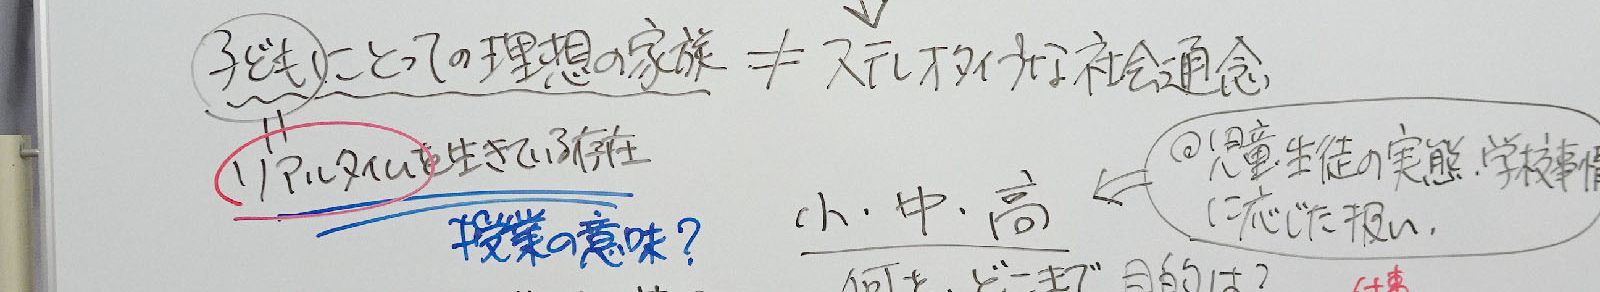 子どもにとっての理想の家族 ≠ ステレオタイプな社会通念
リアルタイムを生きている存在
授業の意味？
小・中・高
◎児童・生徒の実態・学校事情
に応じた扱い。
何を、どこまで 目的は？